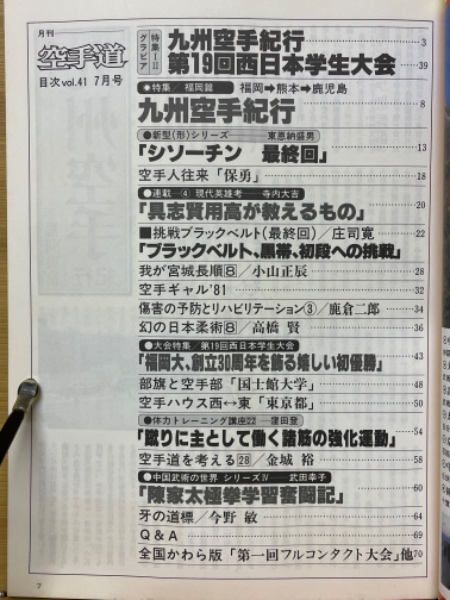 月刊
空手道
目次vol.41 7月号
特集I・II
グラビア
九州空手紀行 3
第19回西日本学生大会 39
●特集/福岡篇 福岡➡熊本➡鹿児島
九州空手紀行 8
●新型(形)シリーズ 東恩納盛男
「シソーチン 最終回」 13
空手人往来「保勇」 18
●連載—④ 現代英雄考 寺内大吉
「具志賢用高が教えるもの」 20
■挑戦ブラックベルト(最終回)/庄司寛 22
「ブラックベルト、黒帯、初段への挑戦」
我が宮城長順8/小山正辰 28
空手ギャル'81 32
傷害の予防とリハビリテーション③/鹿倉二郎 34
幻の日本柔術8/高橋 賢 36
●大会特集/第19回西日本学生大会
「福岡大、創立30周年を飾る嬉しい初優勝」 43
部旗と空手部「国士館大学」 48
空手ハウス西↔東「東京都」 50
●体力トレーニング講座22 窪田登
「蹴りに主として働く諸筋の強化運動」 54
空手道を考える28/金城 裕 58
●中国武術の世界 シリーズIV 武田幸子
「陳家太極拳学習奮闘記」 60
牙の道標/今野 敏 64
Q&A 69
全国かわら版「第一回フルコンタクト大会」他70